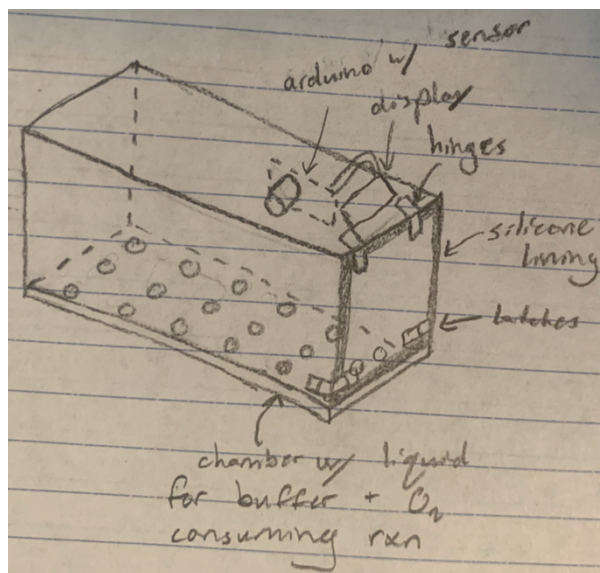 arduino w/ sensor
display
hinges
silicone
lining
latches
chamber w/ liquid
for buffer + O₂
consuming rxn